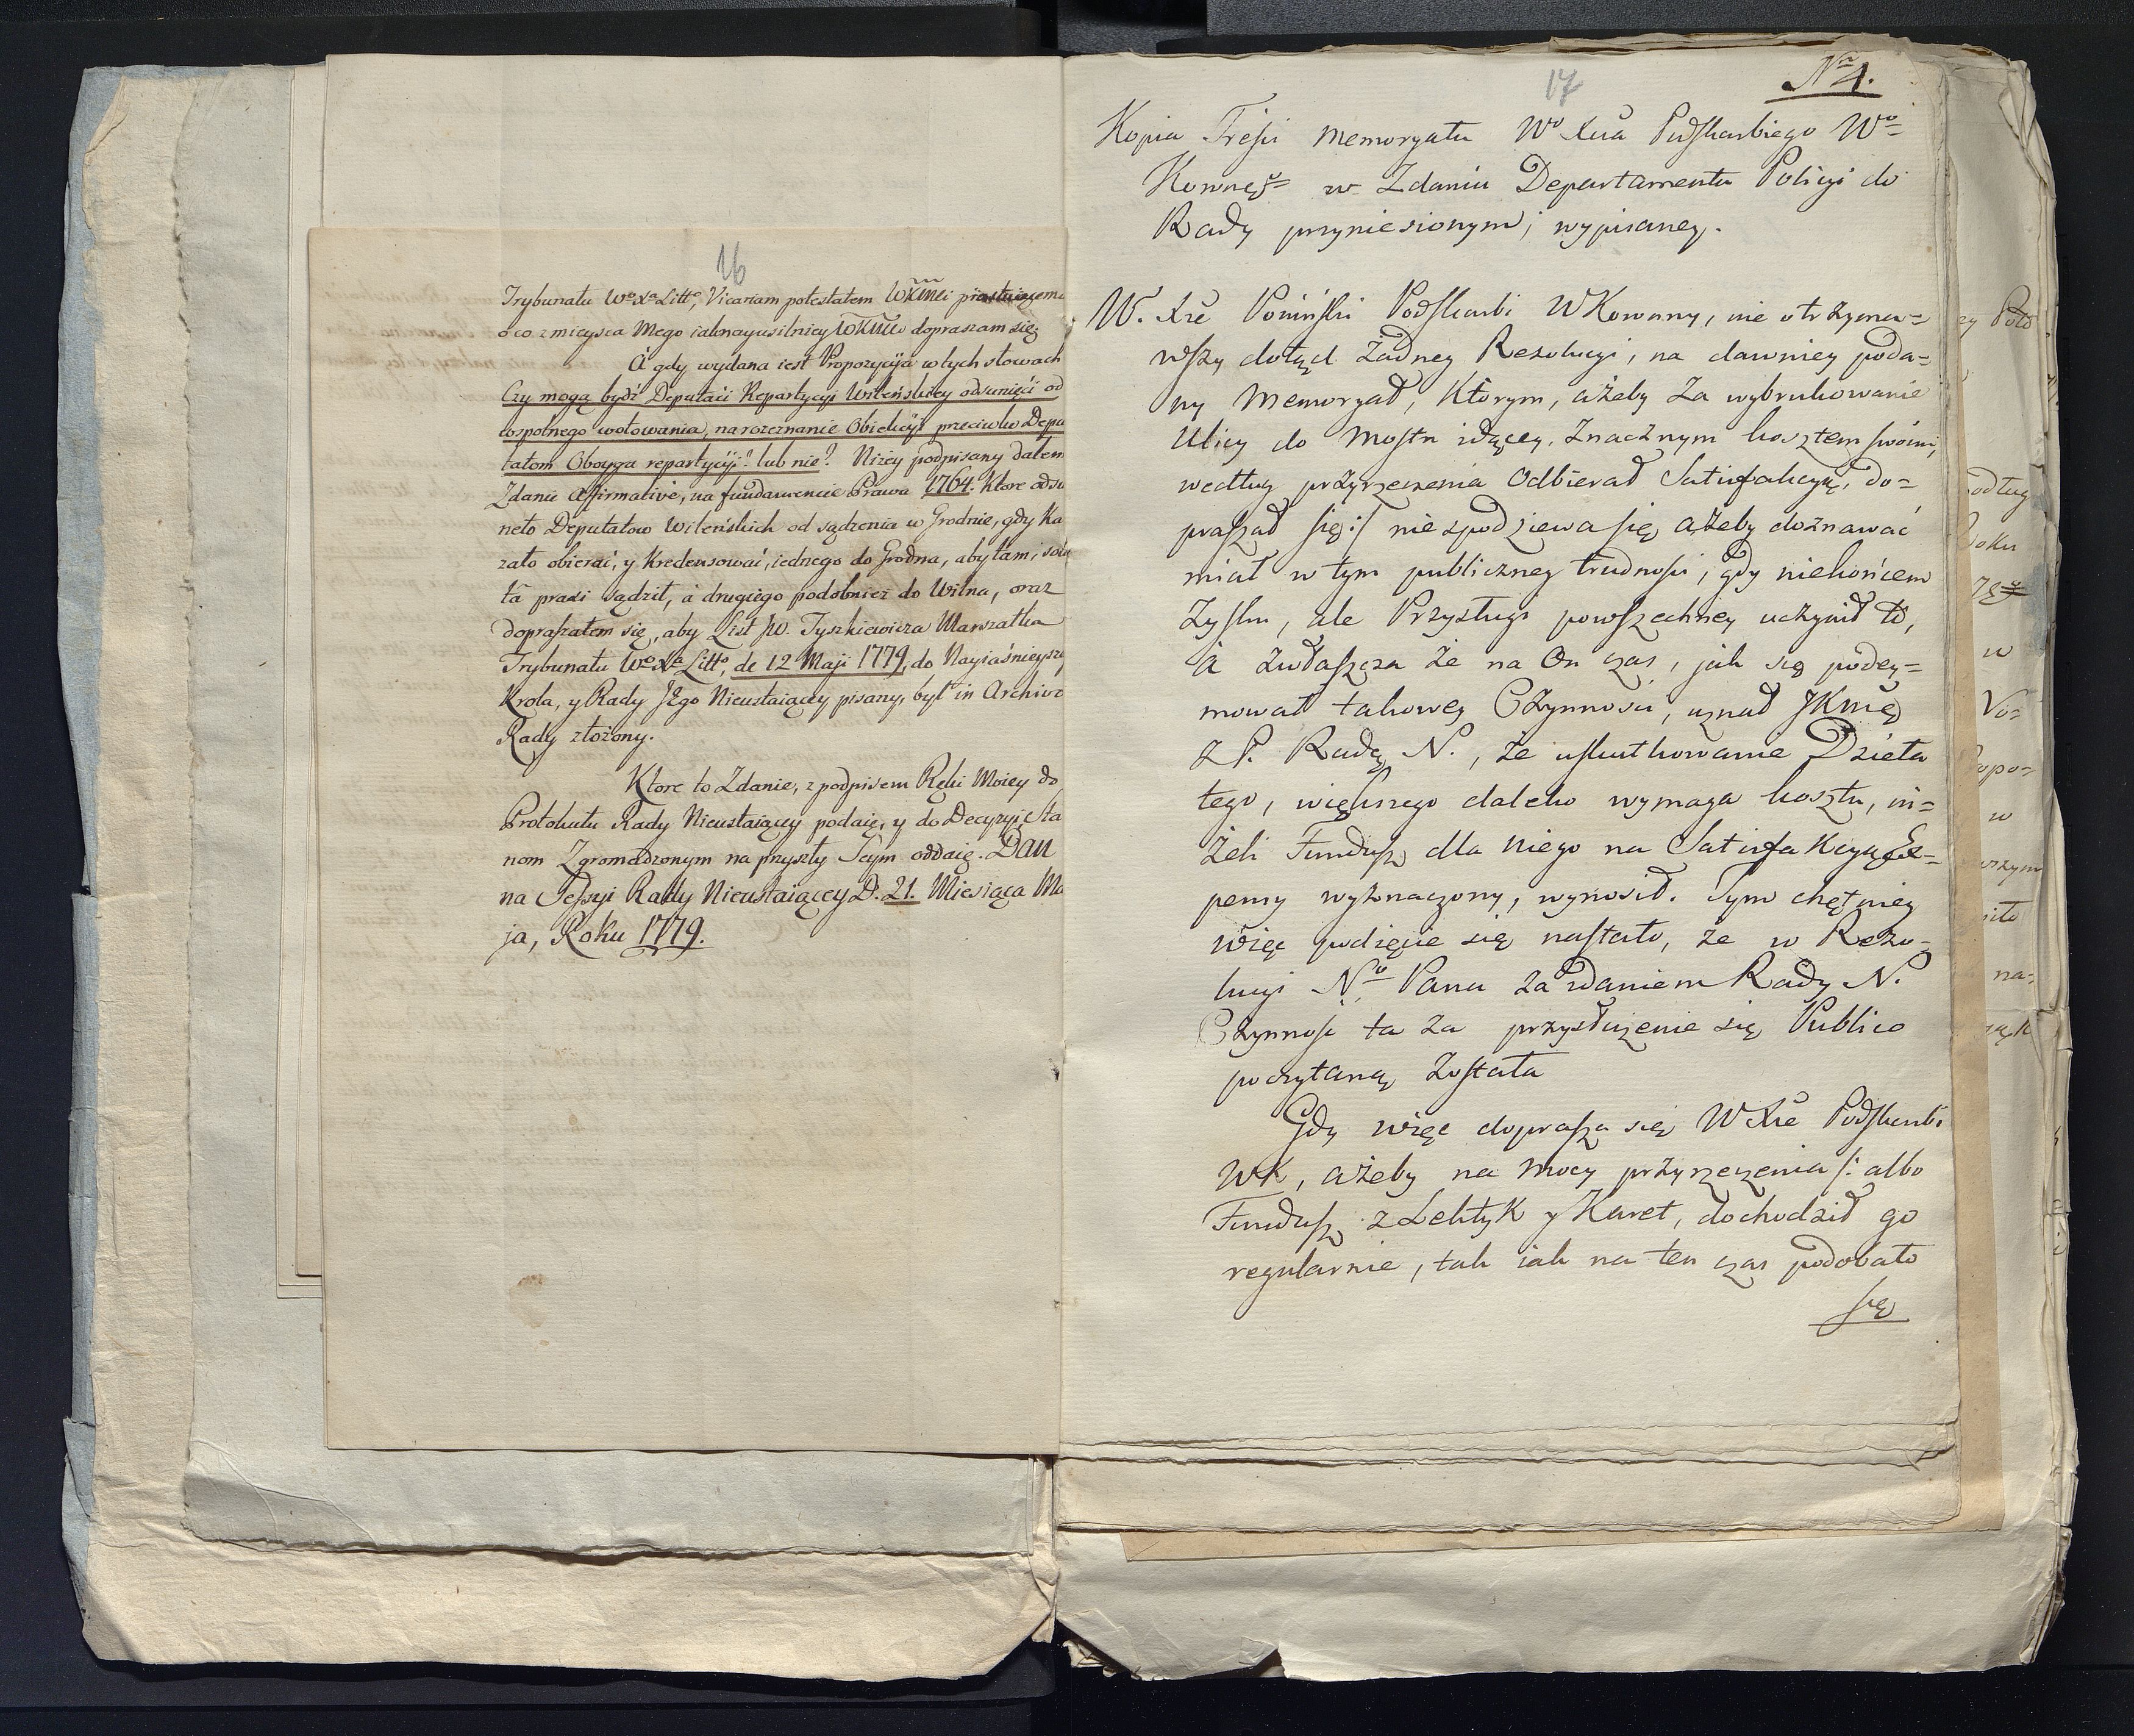 16
Trybunału Wo Xa Litto, Vicariam potestatem WKMci piastuiącemu
o co z mieysca Mego iaknayusilniey WKMci dopraszam się;
A gdy wydana iest Propozycyja w tych słowach
Czy mogą bydź Deputaci Repartycyi Wileńskiey odsunięci od
wspolnego wotowania, na rozeznanie Obiekcyi przeciwko Depu
tatom Oboyga repartycyji? lub nie? Niżey podpisany dałem
Zdanie Affirmativè, na fundamencie Prawa 1764. Ktore odsu
neło Deputatow Wileńskich od sądzenia w Grodnie, gdy Ka
zało obierać, y Kredensować, iednego do Grodna, aby tam
ta praxi sądził, à drugiego podobnież do Wilna, oraz
dopraszałem się, aby List JW. Tyszkiewicza Marszałka
Trybunału Wo Xa Litto, de 12 Maji 1779, do Nayiaśnieysze
Krola, y Rady JEgo Nieustaiącey pisany, był in Archivo
Rady złożony.
Ktore to Zdanie, z podpisem Ręki Moiey do
Protokułu Rady Nieustaiącey podaię, y do Decyzyi Sta
nom Zgromadzonym na przyszły Seym oddaię. Dan
na Sessyi Rady Nieustaiącey D. 21. Miesiąca Ma
ja, Roku 1779.
17
No 4.
Kopia Treści Memoryału Wo Xcia Podskarbiego Wo
Konnego w Zdaniu Departamentu Policyi do
Rady przyniesionym, wypisaney.
W. Xże Poniński Podskarbi WKoronny, nie otrzyma=
wszy dotąd Żadney Rezolucyi, na dawniey poda=
ny Memoryał, Ktorym, ażeby Za wybrukowanie
Ulicy do Mostu idącey, Znacznym kosztem swoim,
według przyrzeczenia Odbierał Satisfakcyą, do=
praszał się:/ niespodziewa się ażeby doznawać
miał w tym publiczney trudności, gdy niekońcem
Zysku, ale Przysługi powszechney uczynił to,
à Zwłaszcza że na On czas, jak się podey=
mował takowey Czynności, uznał JKMć
z P. Radą N., że uskutkowanie Dzieła
tego, większego daleko wymaga kosztu, ni=
żeli Fundusz dla niego na Satisfakcyą Ex=
pensy wyznaczony, wynosił. Tym chętniey
więc podięcie się nastało, że w Rezo=
lucyi No Pana za zdaniem Rady N.
Czynność ta za przysłużenie się Publico
poczytaną została
Gdy więc doprasza się WXże Podskarbi
WK, ażeby na Mocy przyrzeczenia /: albo
Fundusz z Lektyk y Karet, dochodził go
regularnie, tak iak na ten czas podobało
się